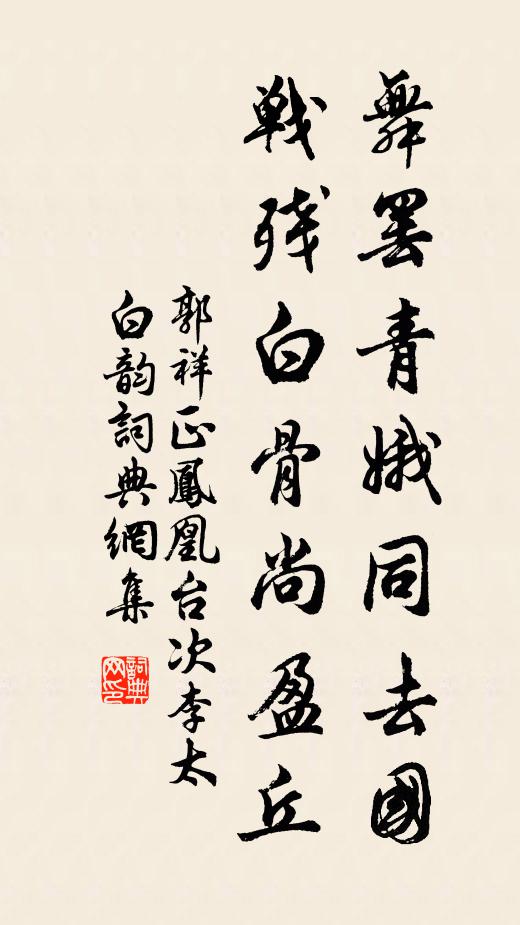 舞罷青娥同去國
戦残白骨尚盈丘
郭祥正鳳凰台次李太
白韵詞典網集
詞典网印